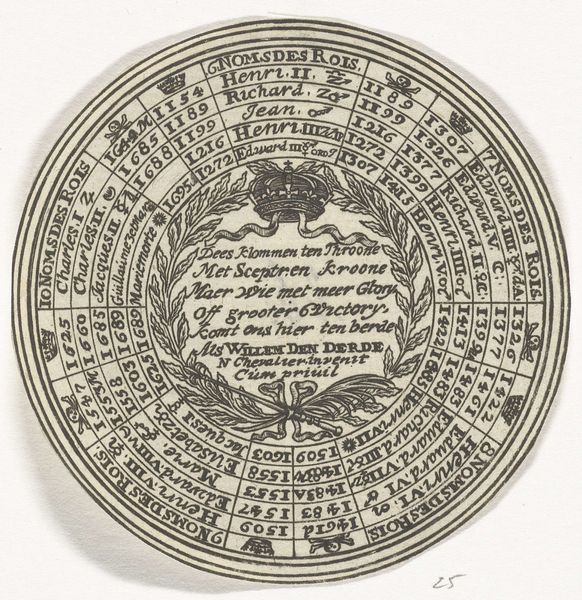 6 NOMS DES ROIS.
1154 Henri. II. 1189
1189 Richard. 1199
1199 Jean. 1216
1216 Henri IIII 1272
1272 Edward III 1307
7 NOMS DES ROIS.
1307 Edward IIII 1326
1326 Edward V. 1377
1377 Richard II 1399
1399 Henri IIII 1413
1413 Henri V. 1422
8 NOMS DES ROIS
1422 Henri. VI. 1461
1461 Eduard. VI 1483
1483 Eduard. VII 1483
1483 Richard III
Henri VII 1509
9 NOMS DES ROIS.
1509 Henri. VIII. 1547
1547 Edward. VIII 1553
1553 Marie 1558
1558 Elisabeth 1603
1603 Jacques I 1625
10 NOMS DES ROIS
1625 Charles. I
1660 Charles. II. 1685
1685 Jacques. II. 1688
1689 Guillaume 3 et Marie
1689 Marie morte 1695
Dees klommen ten Throone
Met Scepter en kroone
Maer Wie met meer Glory
Off grooter Victory.
komt ons hier ten berde
Als WILLEM DEN DERDE
N Chevalier. invenit
Cum privil
25